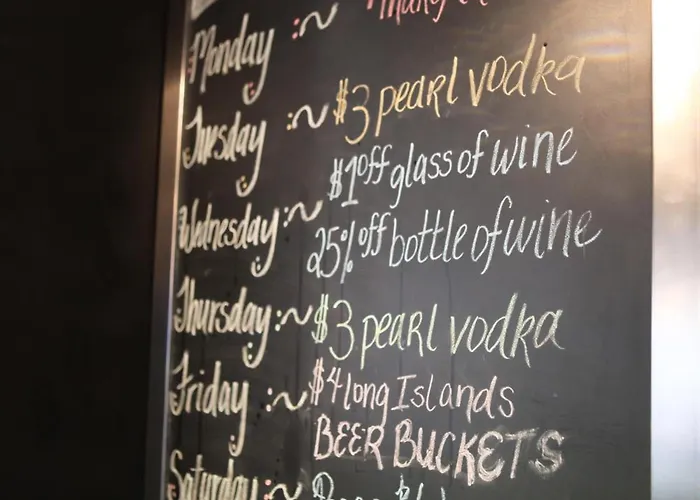 Monday :~
Tuesday :~ $3 pearl vodka
$1 off glass of wine
Wednesday :~ 25% off bottle of wine
Thursday :~ $3 pearl vodka
Friday :~ $4 long Islands
BEER BUCKETS
Saturday :~